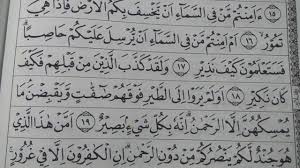 ١٥ ءَاَمِنْتُمْ مَّنْ فِى السَّمَآءِ اَنْ يَّخْسِفَ بِكُمُ الْاَرْضَ فَاِذَا هِيَ
تَمُوْرُ ١٦ اَمْ اَمِنْتُمْ مَّنْ فِى السَّمَآءِ اَنْ يُّرْسِلَ عَلَيْكُمْ حَاصِبًا
فَسَتَعْلَمُوْنَ كَيْفَ نَذِيْرِ ١٧ وَلَقَدْ كَذَّبَ الَّذِيْنَ مِنْ قَبْلِهِمْ فَكَيْفَ
كَانَ نَكِيْرِ ١٨ اَوَلَمْ يَرَوْا اِلَى الطَّيْرِ فَوْقَهُمْ صٰٓفّٰتٍ وَّيَقْبِضْنَ مَا
يُمْسِكُهُنَّ اِلَّا الرَّحْمٰنُ اِنَّهُ بِكُلِّ شَيْءٍ بَصِيْرٌ ١٩ اَمَّنْ هٰذَا الَّذِيْ
هُوَ جُنْدٌ لَّكُمْ يَنْصُرُكُمْ مِّنْ دُوْنِ الرَّحْمٰنِ اِنِ الْكٰفِرُوْنَ اِلَّا فِيْ غُرُوْرٍ